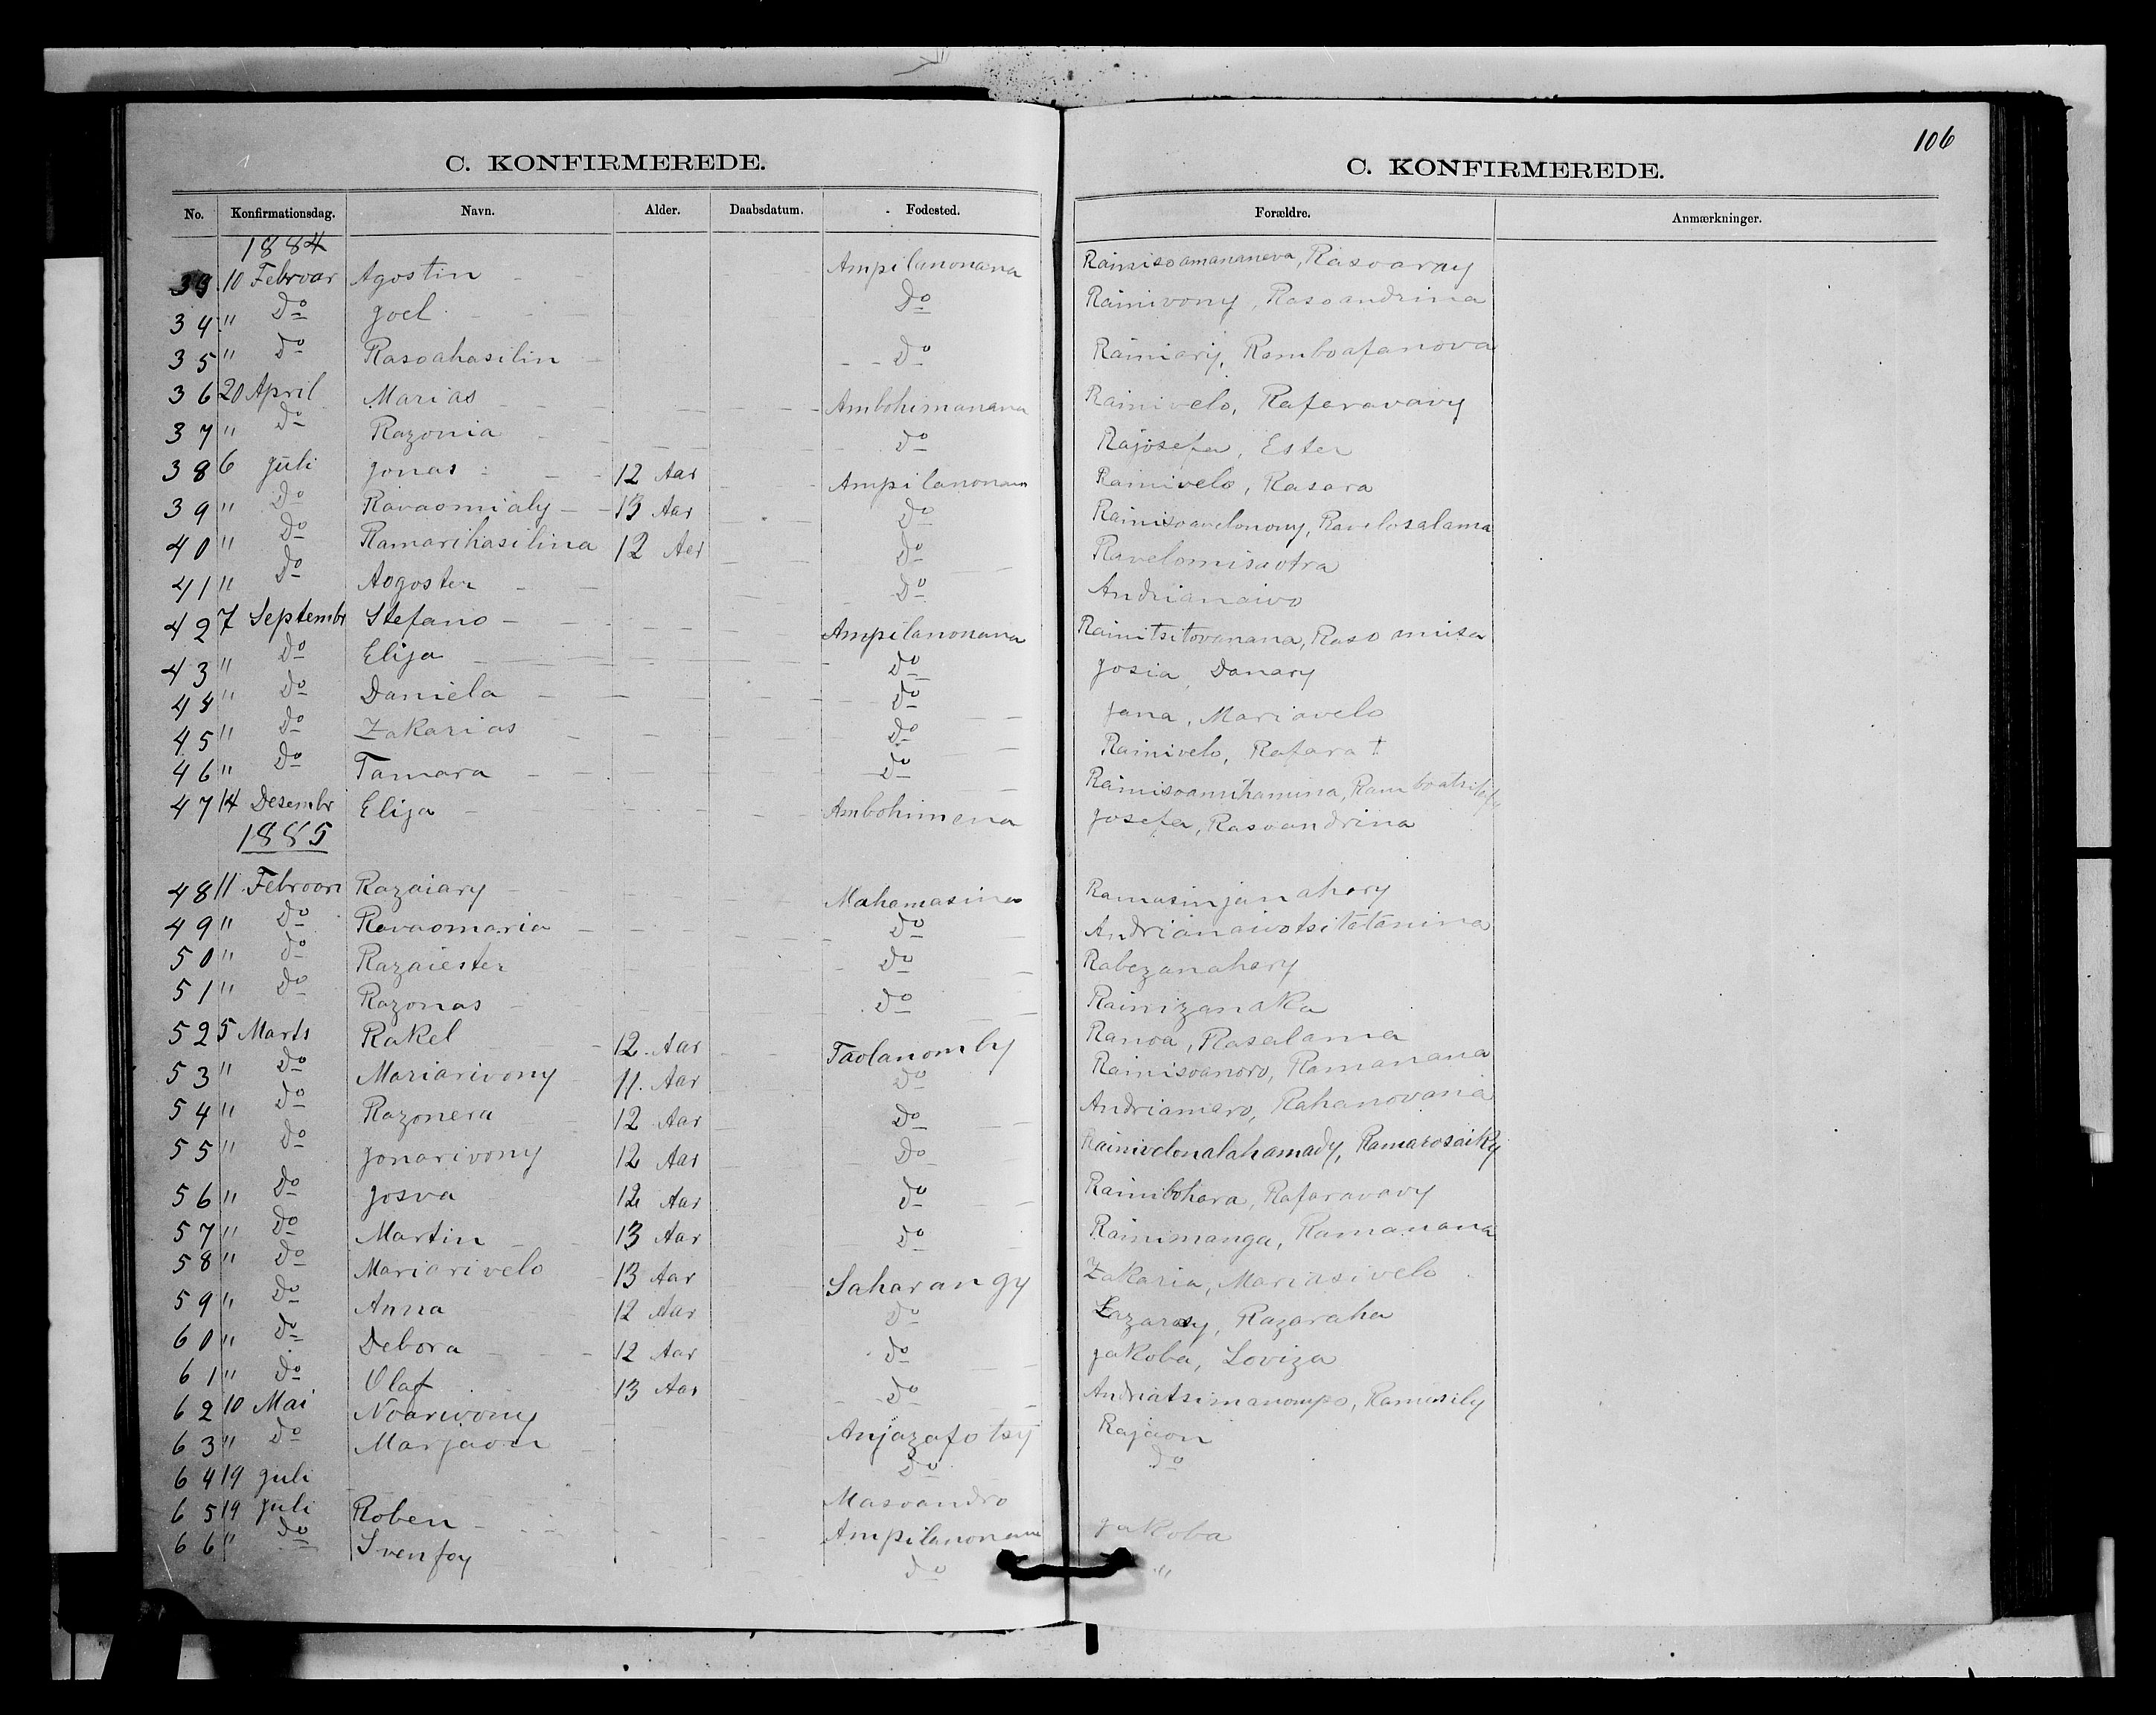 106
C. KONFIRMEREDE.
C. KONFIRMEREDE.
No. Konfirmationsdag. Navn. Alder. Daabsdatum. Fodested. Forældre. Anmærkninger.
1884
33 10 Februar Agostin Ampilanonana Rainisoamananeva, Rasoaray
34 " Do Joel Do Rainivony, Rasoandrina
35 " Do Rasoahasilin Do Rainiarij, Ramboafanova
36 20 April Marias Ambohimanana Rainivelo, Rafaravavy
37 " Do Razonia Do Rajosefa, Ester
38 6 Juli Jonas 12 Aar Ampilanonana Rainivelo, Rasara
39 " Do Ravaomialy 13 Aar Do Rainisoavelonony, Ravelosalama
40 " Do Ramarihasilina 12 Aar Do Ravelomisaotra
41 " Do Aogosten Do Andrianaivo
42 7 Septembr Stefano Ampilanonana Rainitsitovanana, Rasomisa
43 " Do Elija Do Josia, Danary
44 " Do Daniela Do Jana, Mariavelo
45 " Do Zakarias Do Rainivelo, Rafara †
46 " Do Tamara Do Rainisoamihamina,
47 14 Desembr Elija Ambohimena Josefa, Rasoandrina
1885
48 11 Februari Razaiary Mahamasina Ramasinjanahary
49 " Do Ravaomaria Do Andrianaivotsitatanina
50 " Do Razaiester Do Rabezanahary
51 " Do Razonas Do Rainizanaka
52 5 Marts Rakel 12 Aar Taolanomby Ranoa, Rasalama
53 " Do Mariarivony 11 Aar Do Rainisoanoro, Ramanana
54 " Do Razonera 12 Aar Do Andriamaro, Rahanovana
55 " Do Jonarivony 12 Aar Do Rainivelonalahamady, Ramarosaiky
56 " Do Josva 12 Aar Do Rainibohara, Rafaravavy
57 " Do Martin 13 Aar Do Rainimanga, Ramanana
58 " Do Mariarivelo 13 Aar Saharangy Zakaria, Mariasivelo
59 " Do Anna 12 Aar Do Lazarosy, Razaraha
60 " Do Debora 12 Aar Do Jakoba, Loviza
61 " Do Olaf 13 Aar Do Andriatsimanompo, Ramisily
62 10 Mai Noarivony Anjazafotsy Rajaon
63 " Do Marjaon Do Do
64 19 Juli Masoandro
65 19 Juli Roben Ampilanonana Jakoba
66 " Do Svenfoy Do "